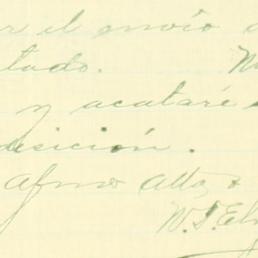 r el envío d
tado. N
y acataré
osición.
Afmo Atto, &
W. S. El